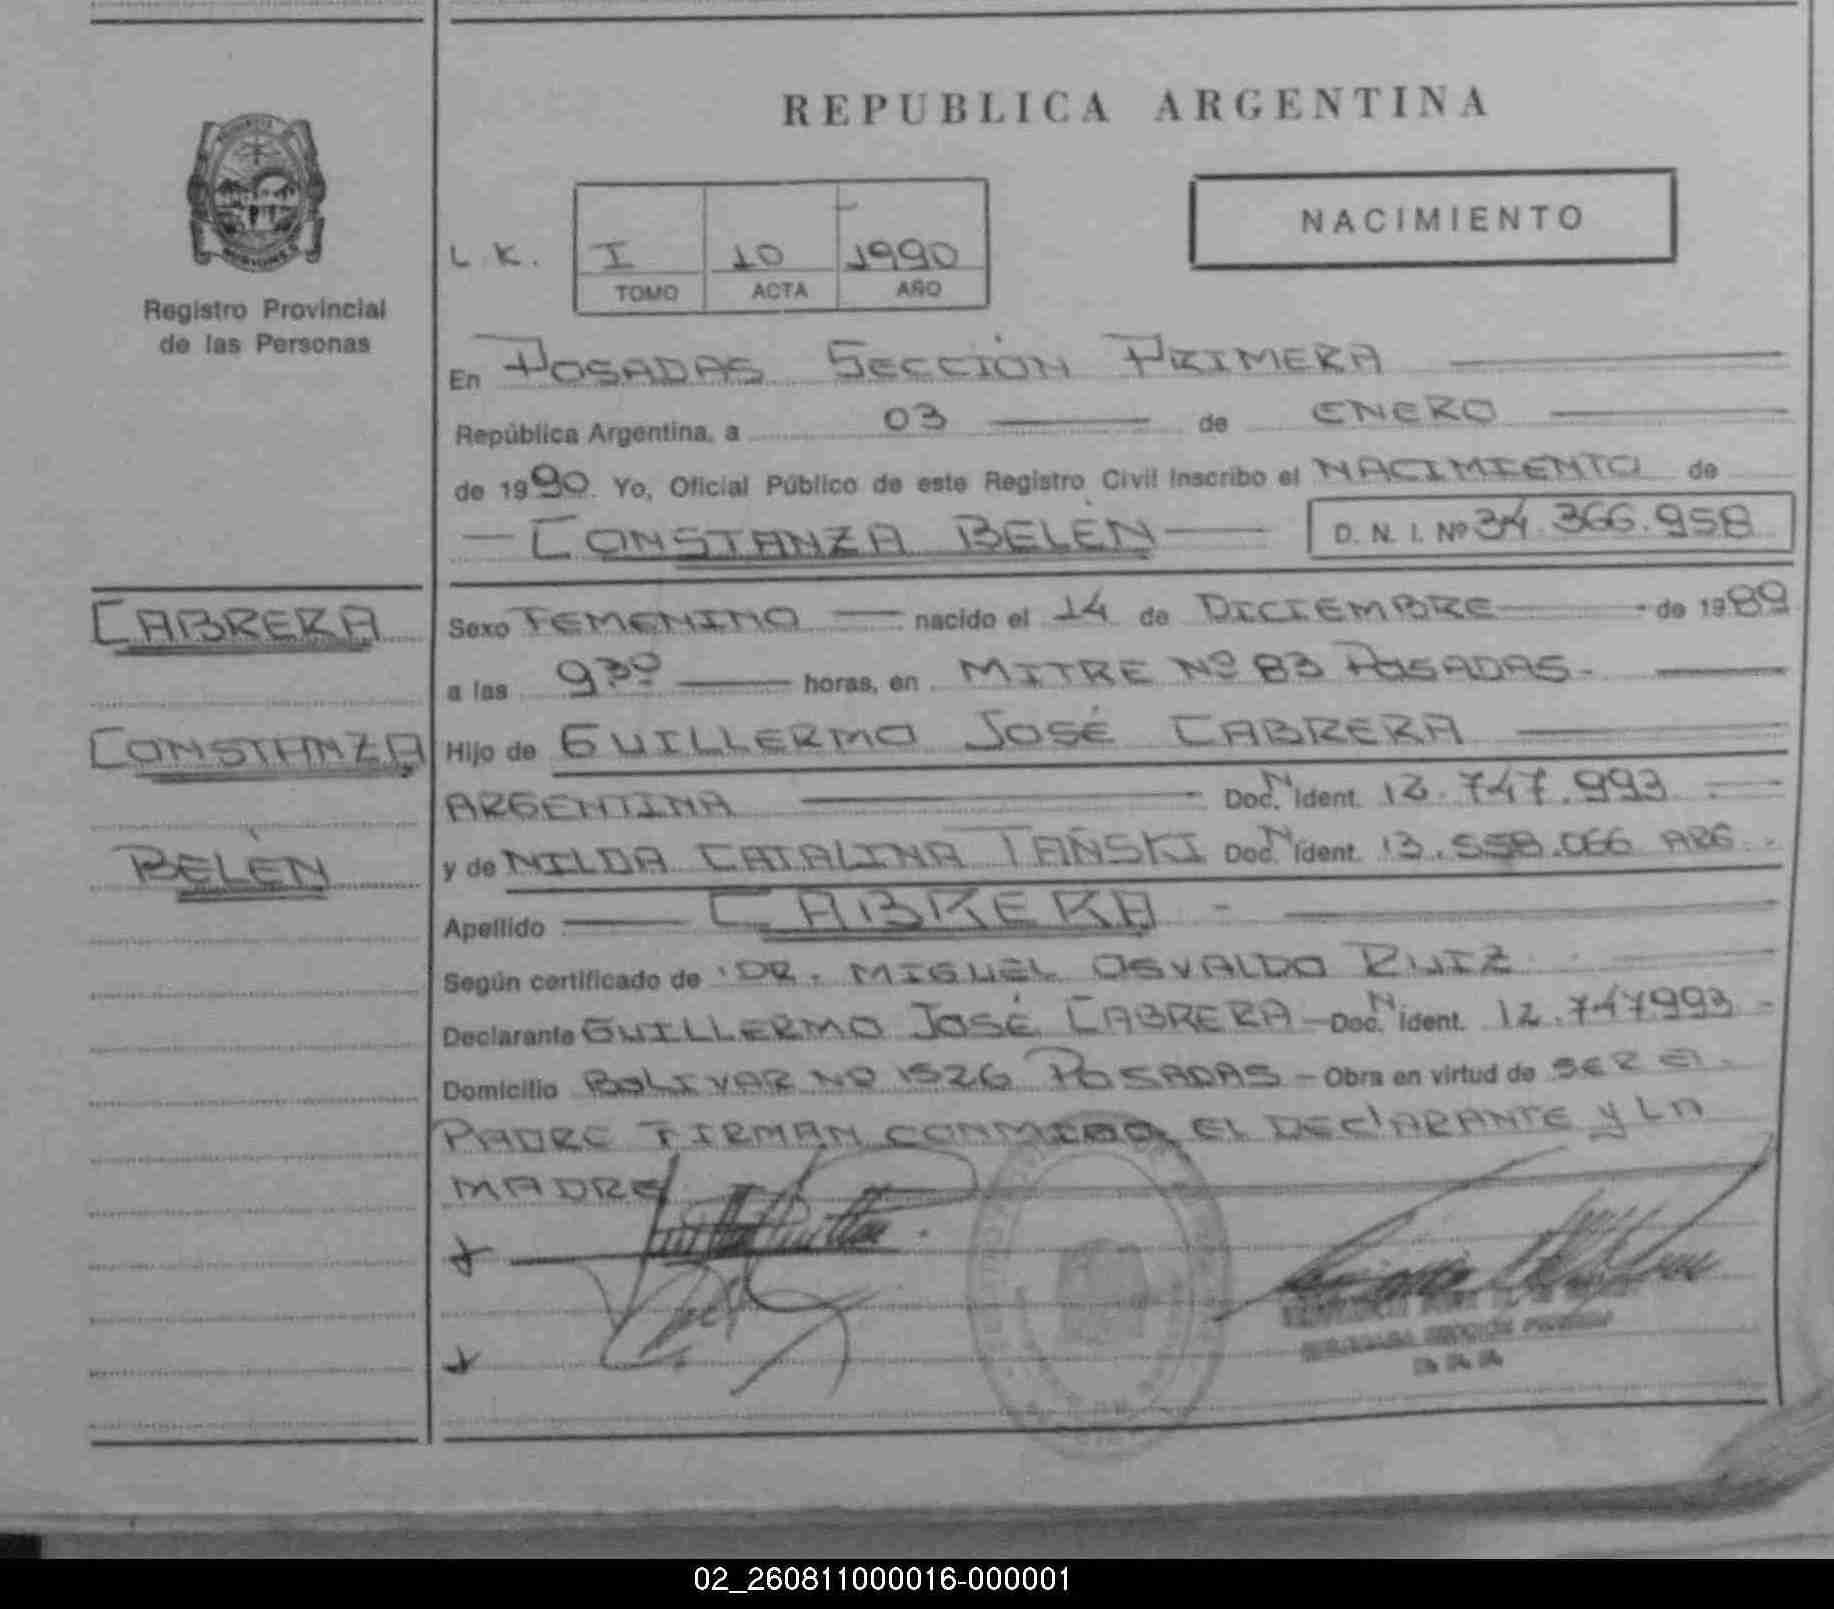 REPUBLICA ARGENTINA
NACIMIENTO
L. K. I 10 1990
TOMO ACTA AÑO
Registro Provincial
de las Personas
En POSADAS SECCIÓN PRIMERA
República Argentina, a 03 de ENERO
de 1990. Yo, Oficial Público de este Registro Civil Inscribo el NACIMIENTO de
CONSTANZA BELÉN D. N. I. Nº 34.366.958
CABRERA
CONSTANZA
BELÉN
Sexo FEMENINO nacido el 14 de DICIEMBRE de 1989
a las 9³⁰ horas, en MITRE Nº 83 POSADAS-
Hijo de GUILLERMO JOSÉ CABRERA
ARGENTINA Doc. N Ident. 12.747.993
y de NILDA CATALINA TAÑSKI Doc. N Ident. 13.558.066 ARG.-
Apellido CABRERA -
Según certificado de DR. MIGUEL OSVALDO RUIZ
Declarante GUILLERMO JOSÉ CABRERA - Doc. N Ident. 12.747993 -
Domicilio BOLIVAR Nº 1526 POSADAS - Obra en virtud de SER El
PADRE FIRMAN CONMIGO EL DEClARANTE y LA
MADRE
02_260811000016-000001